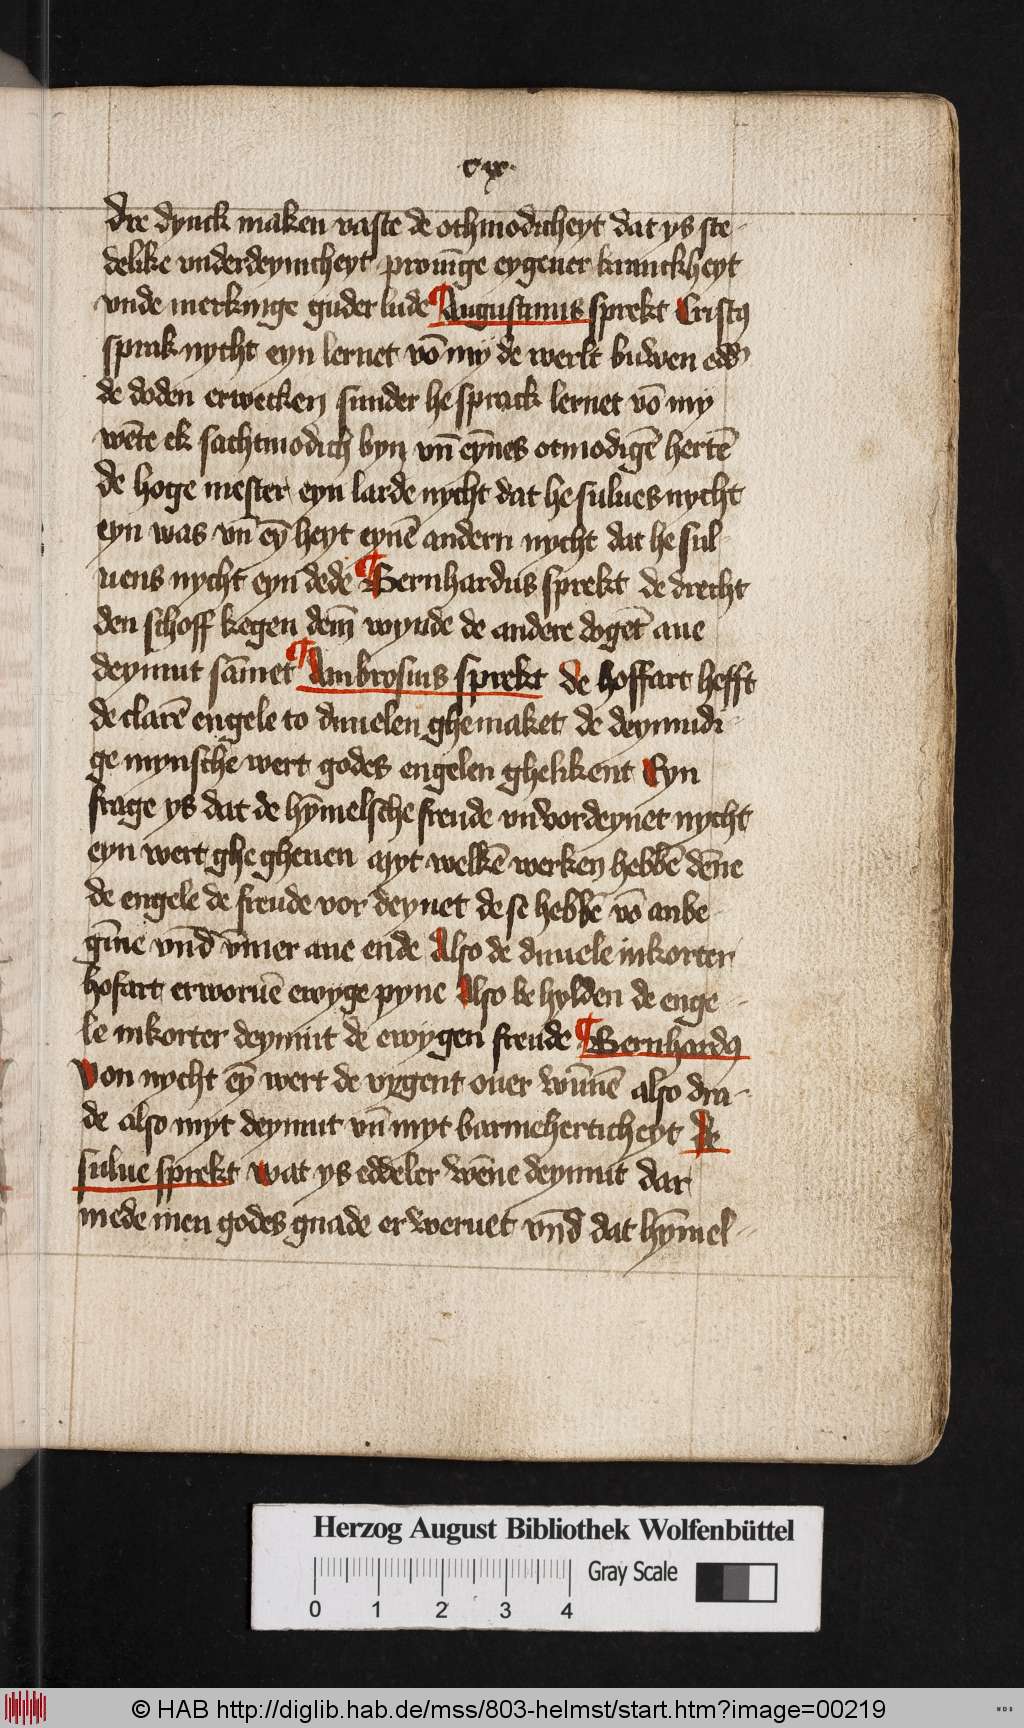 ·cix·
dre dynck maken vaste de othmodicheyt dat ys ste-
delike vnderdeynicheyt prouīge eygener kranckheyt
vnde merkinge guder lude ¶ Augustinus sprekt Cristꝯ
sprak nycht eyn lernet vō my de werlt buwen edd'
de doden erwecken sunder he sprack lernet vō my
wēte ek sachtmodich byn vn̄ eynes otmodigē hertē
de hoge mester eyn larde nycht dat he sulues nycht
eyn was vn̄ eȳ heyt eynē andern nycht dat he sul-
uens nycht eyn dede ¶ Bernhardus sprekt de drecht
den schoff kegen dem̄ wynde de andere dogēt ane
deymut sāmet ¶ Ambrosius sprekt de hoffart hefft
de clarē engele to duuelen ghemaket de deymudi-
ge mynschē wert godes engelen ghelikent Eyn
frage ys dat de hȳmelsche freude vnvordeynet nycht
eyn wert ghe gheuen myt welkē werken hebbē dēne
de engele de freude vor deynet de se hebbē vō anbe-
gīne vn̄d v̄mer ane ende Also de duuele inkorter
hofart erworuē ewyge pyne Also be hylden de enge-
le inkorter deymut de ewygen freude ¶ Bernhardꝯ
Von nycht eȳ wert de vygent ouer wūnē also dra-
de also myt deymut vn̄ myt barmeherticheyt De
sulue sprekt wat ys eddeler wēne deymut dar
mede men godes gnade erweruet vn̄d dat hȳmel-
Herzog August Bibliothek Wolfenbüttel
Gray Scale
0 1 2 3 4
© HAB http://diglib.hab.de/mss/803-helmst/start.htm?image=00219